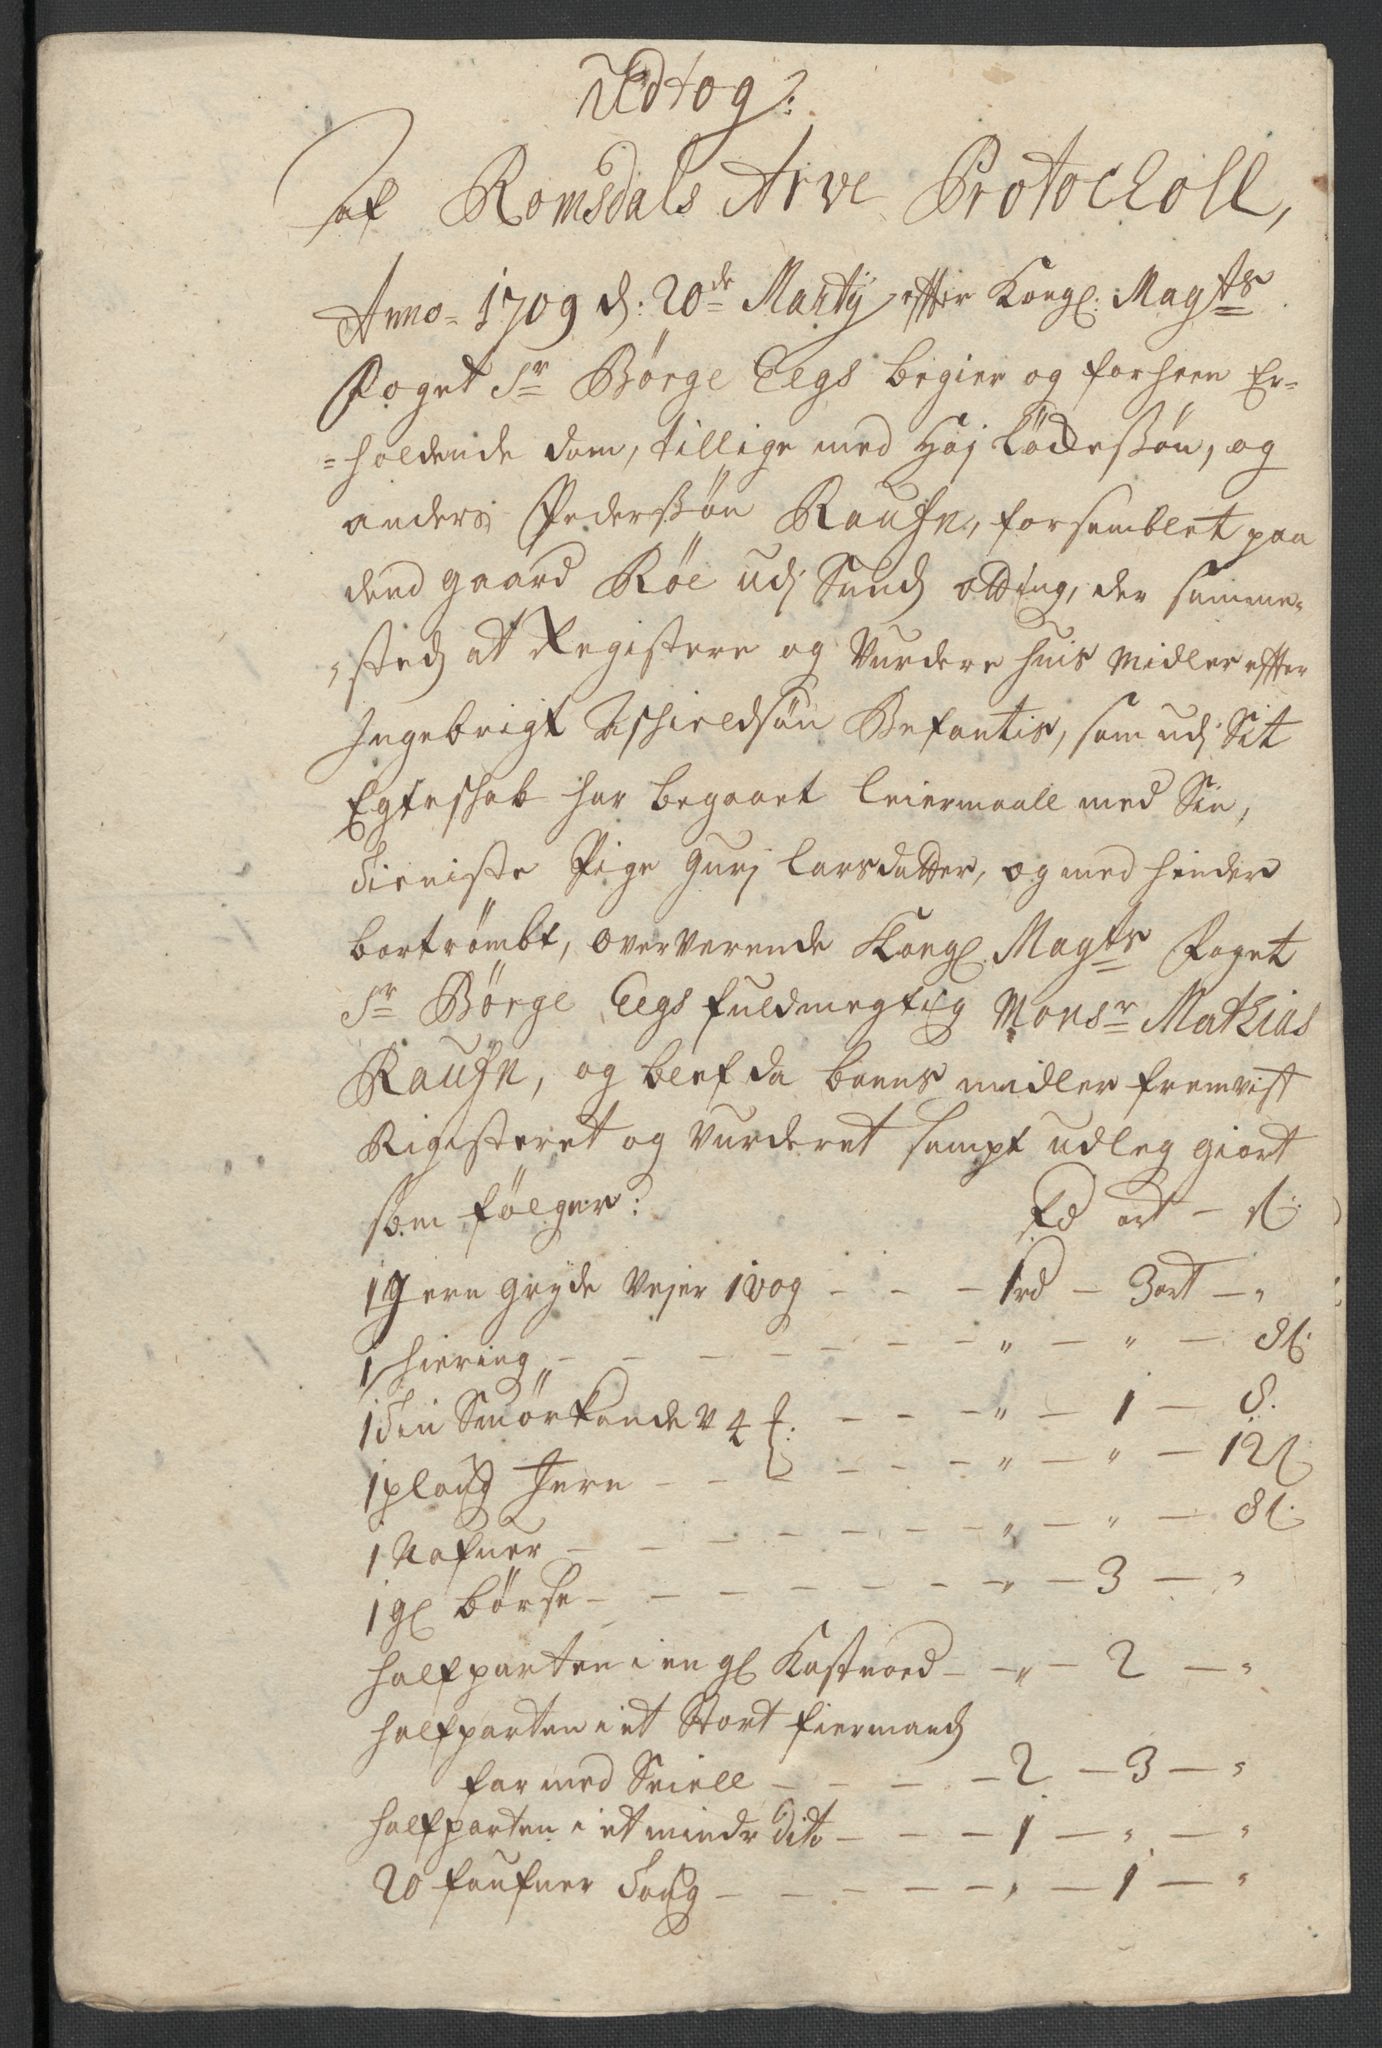 Udtog:
af Romsdals Arve Protocholl,
Anno- 1709 d: 20de Martij effter Kongl: Magts
Foget Sr Börge Eegs begier og forhen Er-
=holdende dom, tillige med Haj Lödessön, og
anders Pederssön Rauhn, forsamblet paa
dend gaard Röe udj Sunds otting, der samme-
=steds at Registere og Vurdere huis Midler effter
Ingebrigt Befantis, som udj Sit
Egteschab har begaaet Leiermaall med Sin,
tieniste Pige Gurj Larsdatter, og med hinder
bortrömbt, oververende Kongl. Magts Foget
Sr Börge Eegs fuldmegtig Monsr Mathias
Rauhn, og blef da bems midler fremvist
Rigisteret og Vurderet sampt udleg giort
som fölger: Rd ort - ß:
1 Jern gryde Vejer 1 vog - - - 1 rd - 3 ort - "
1 hiering - - - - - - - " - " - 8 ß:
1 tin Smörkande v 4 - - - " - 1 - 8.
1 ploug Jern - - - - - - " - " - 12 ß
1 Nafuer - - - - - - - " - " - 8 ß:
1 gl börse - - - - - - - " - 3 - "
halfparten i en gl Kastnoed - - " - 2 - "
halfparten i et Stort fiermands
far med Seiell - - - - 2 - 3 - "
halfparten i et mindr dito - - - 1 - " - "
20 faufner toug - - - - - " - 1 - "